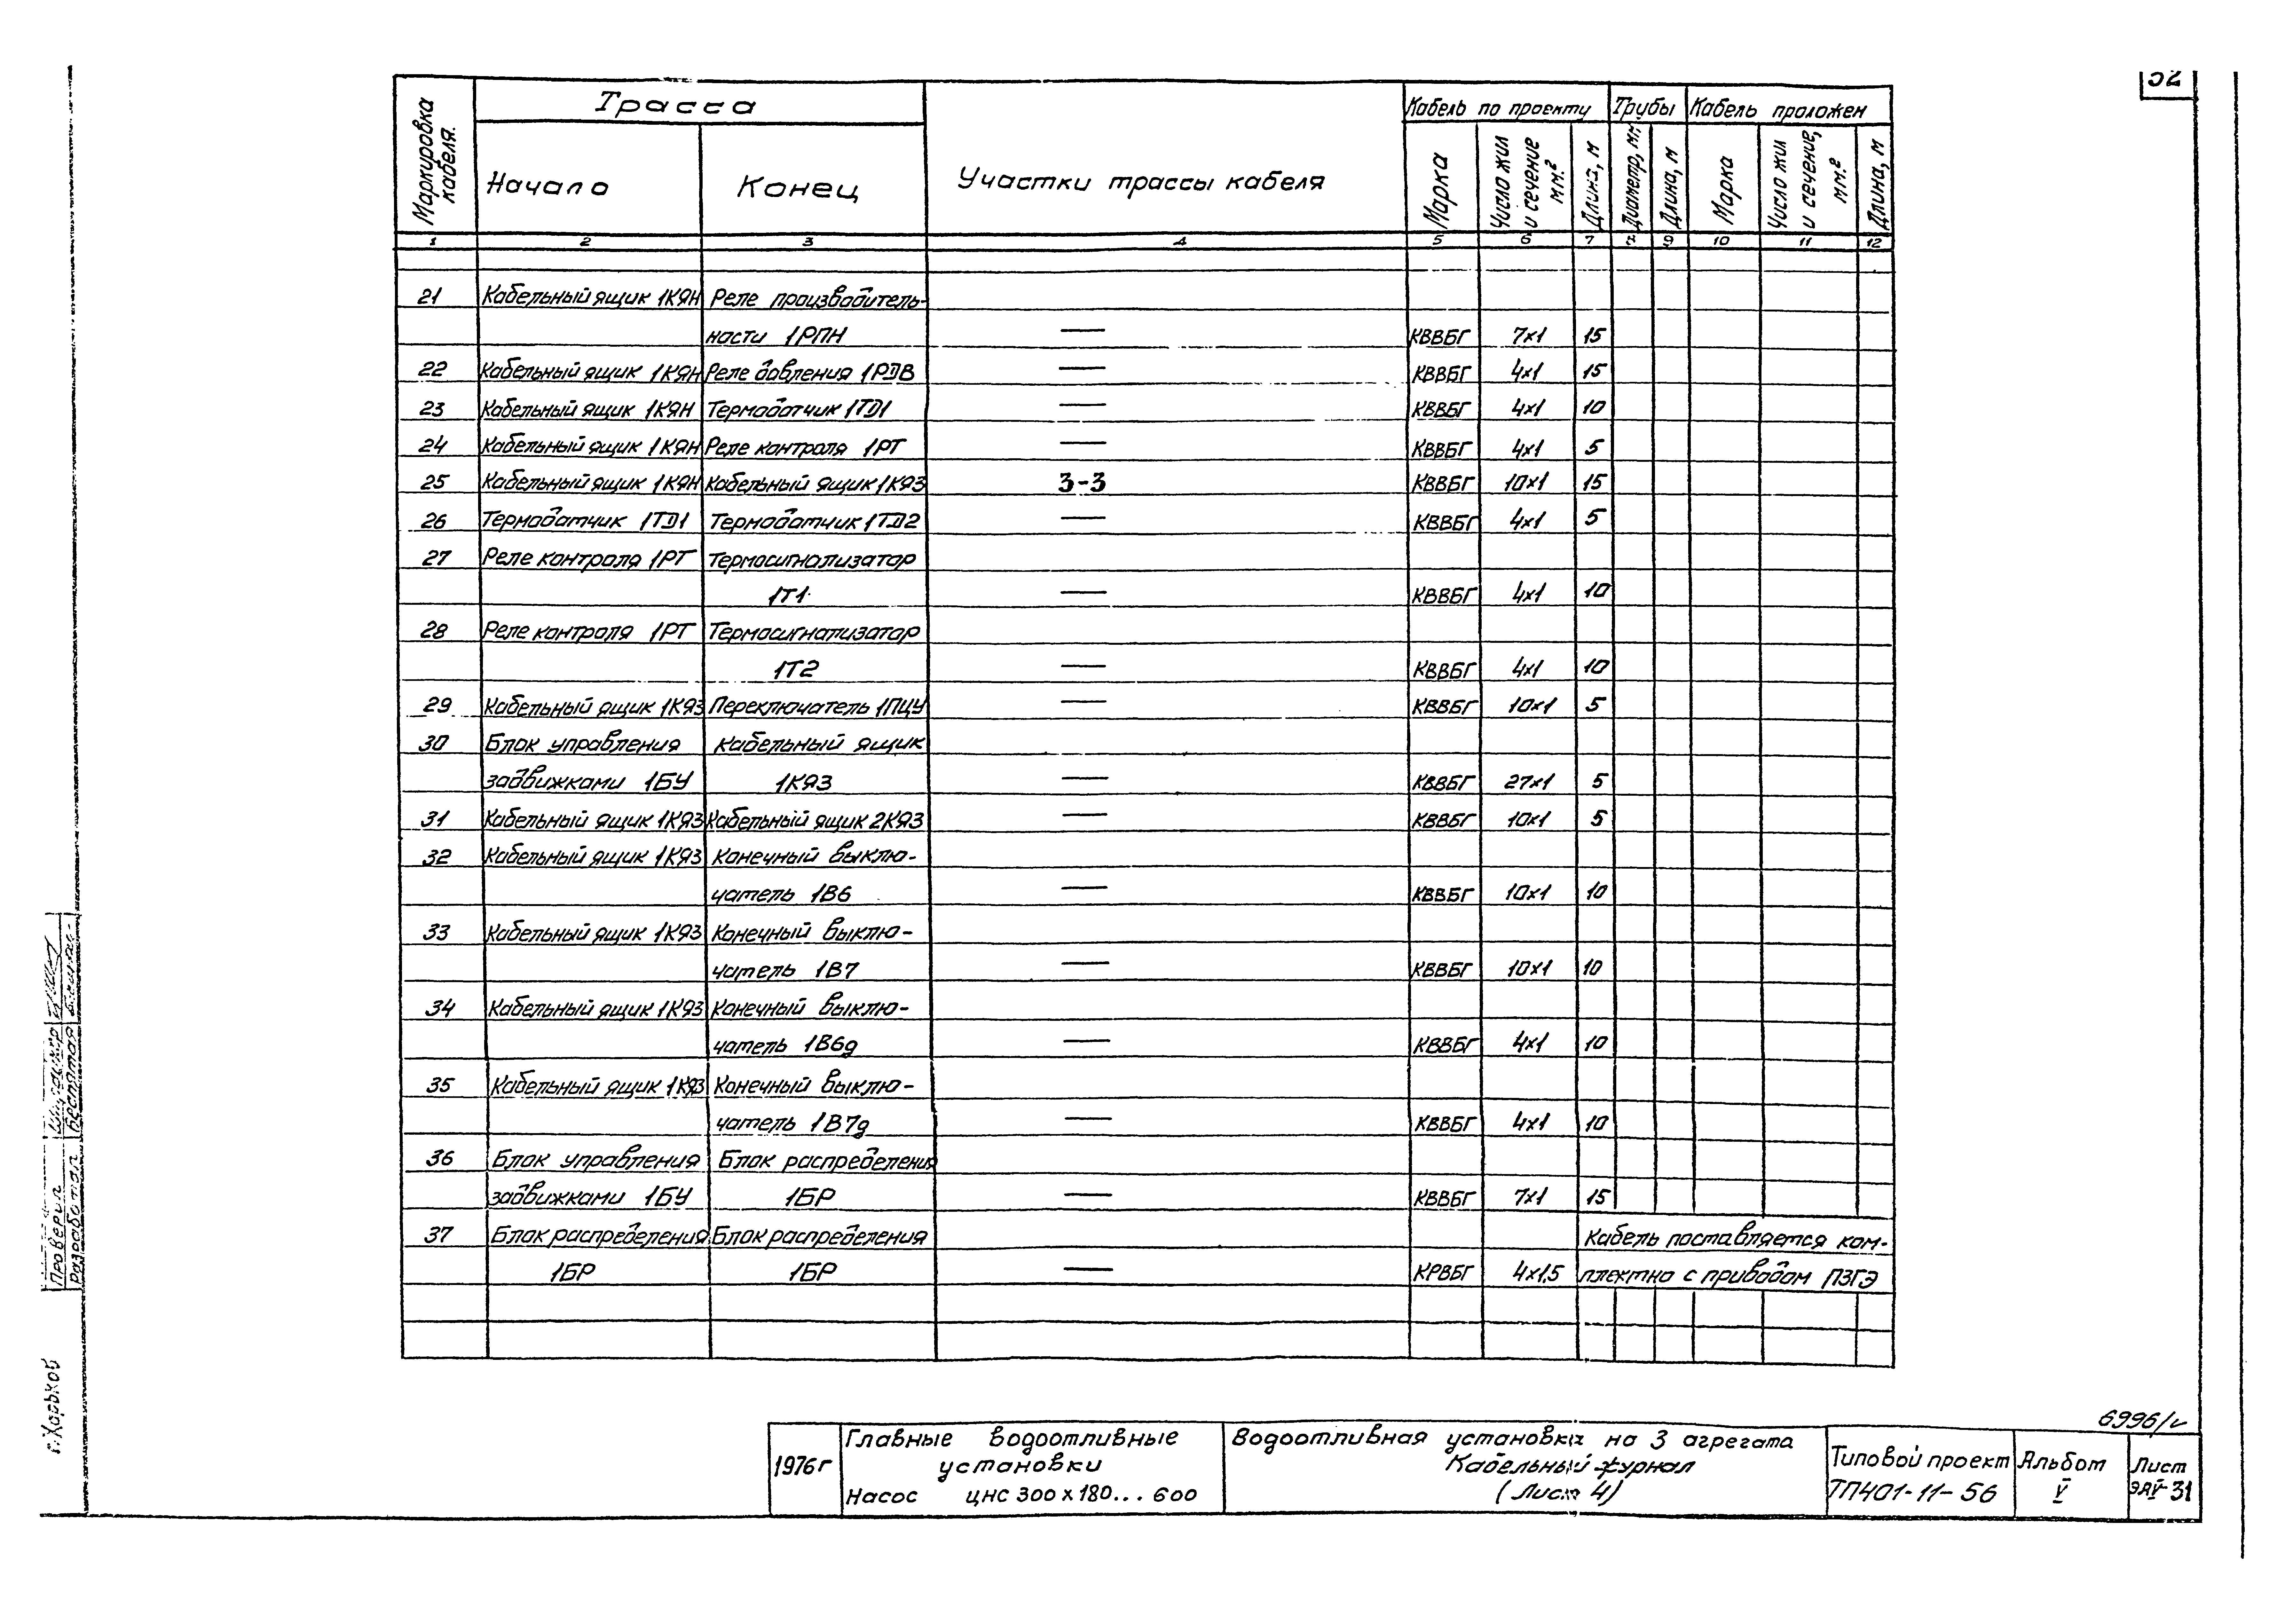 52
Маркировка кабеля.
Трасса
Начало
Конец
Участки трассы кабеля
Кабель по проекту
Марка
Число жил и сечение мм.²
Длина, м
Трубы
Диаметр, мм
Длина, м
Кабель проложен
Марка
Число жил и сечение, мм.²
Длина, м
1 2 3 4 5 6 7 9 10 11 12
21 Кабельный ящик 1КЯН Реле производитель-
ности 1РПН — КВВБГ 7х1 15
22 Кабельный ящик 1КЯН Реле давления 1РДВ — КВВБГ 4х1 15
23 Кабельный ящик 1КЯН Термодатчик 1ТД1 — КВВБГ 4х1 10
24 Кабельный ящик 1КЯН Реле контроля 1РТ — КВВБГ 4х1 5
25 Кабельный ящик 1КЯН Кабельный ящик 1КЯЗ 3-3 КВВБГ 10х1 15
26 Термодатчик 1ТД1 Термодатчик 1ТД2 — КВВБГ 4х1 5
27 Реле контроля 1РТ Термосигнализатор
1Т1 — КВВБГ 4х1 10
28 Реле контроля 1РТ Термосигнализатор
1Т2 — КВВБГ 4х1 10
29 Кабельный ящик 1КЯЗ Переключатель 1ПЦУ — КВВБГ 10х1 5
30 Блок управления Кабельный ящик
задвижками 1БУ 1КЯЗ — КВВБГ 27х1 5
31 Кабельный ящик 1КЯЗ Кабельный ящик 2КЯЗ — КВВБГ 10х1 5
32 Кабельный ящик 1КЯЗ Конечный выклю-
чатель 1В6 — КВВБГ 10х1 10
33 Кабельный ящик 1КЯЗ Конечный выклю-
чатель 1В7 — КВВБГ 10х1 10
34 Кабельный ящик 1КЯЗ Конечный выклю-
чатель 1В6д — КВВБГ 4х1 10
35 Кабельный ящик 1КЯЗ Конечный выклю-
чатель 1В7д — КВВБГ 4х1 10
36 Блок управления Блок распределения
задвижками 1БУ 1БР — КВВБГ 7х1 15
37 Блок распределения Блок распределения Кабель поставляется ком-
1БР 1БР — КРВБГ 4х1,5 плектно с приводом ПЗГЭ
Проверил
Разработал Беспятая
г. Харьков
6996/V
1976г
Главные водоотливные
установки
Насос ЦНС 300х180...600
Водоотливная установка на 3 агрегата
Кабельный журнал
(Лист 4)
Типовой проект
ТП401-11-56
Альбом
V
Лист
ЭАV-31